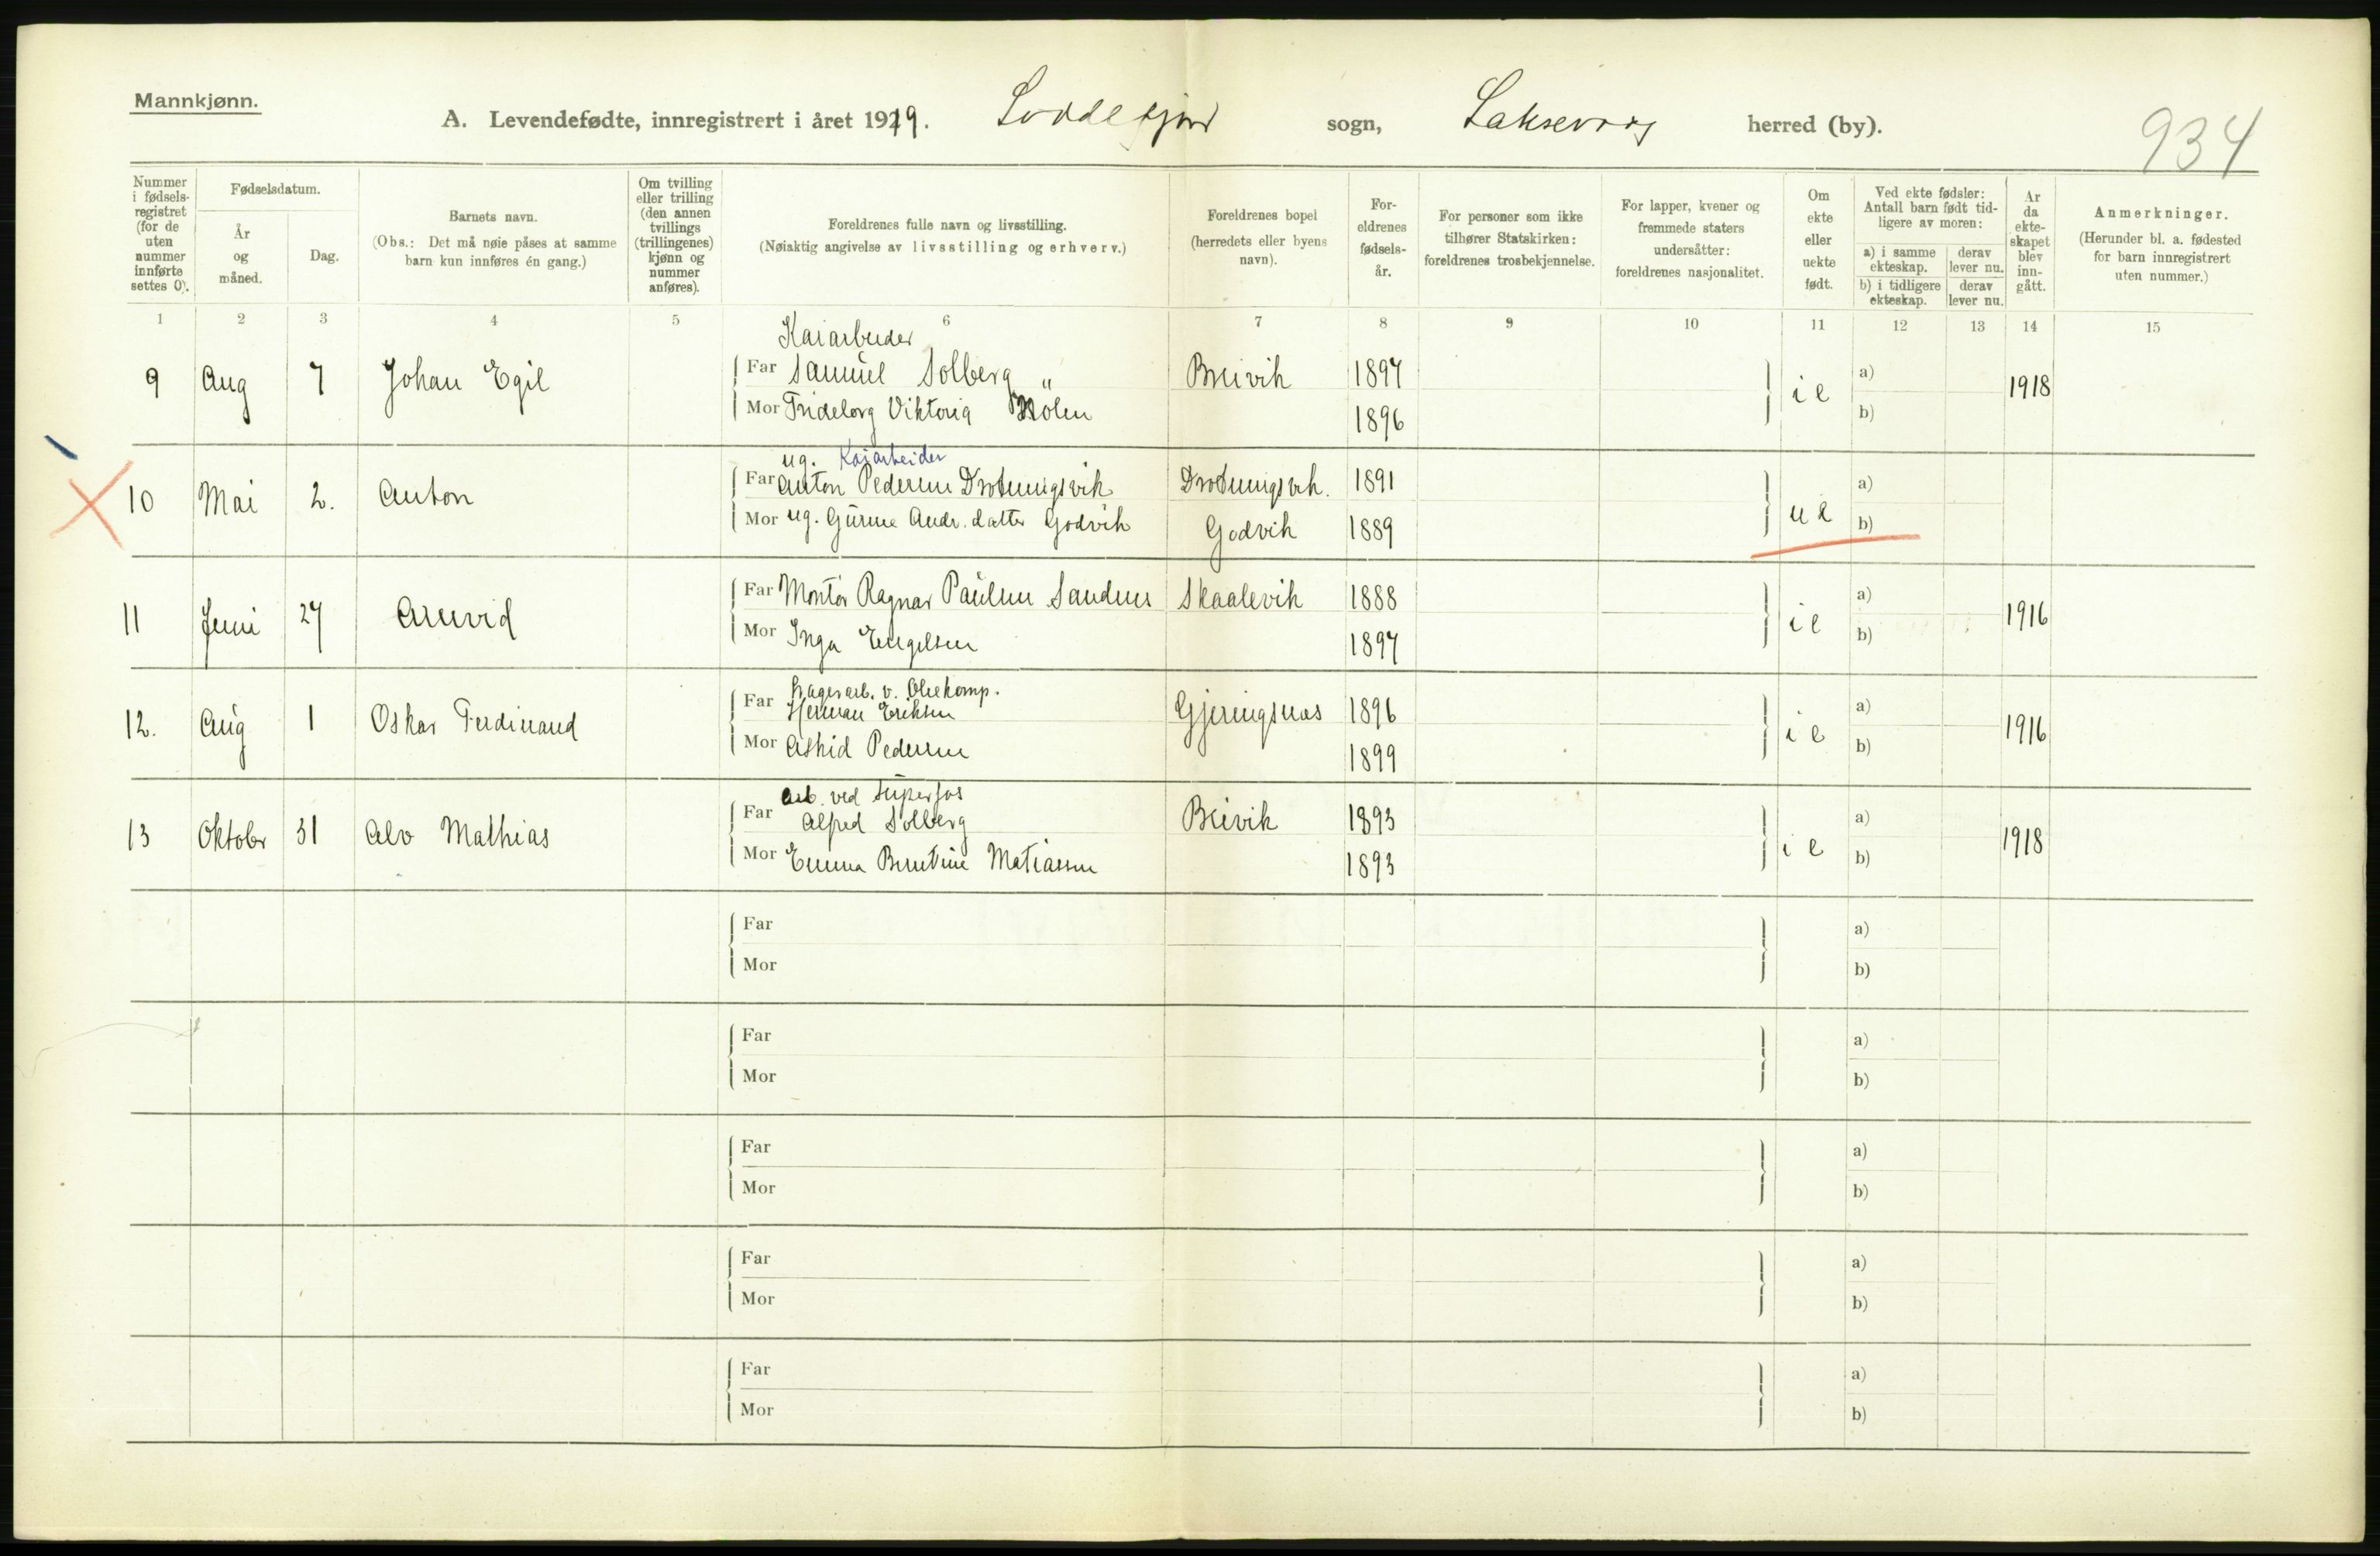 Mannkjønn.
A. Levendefødte, innregistrert i året 1919. Loddefjord sogn, Laksevaag herred (by).
934
Nummer i fødsels-registret (for de uten nummer innførte settes 0).
Fødselsdatum.
År og måned.
Dag.
Barnets navn.
(Obs.: Det må nøie påses at samme barn kun innføres én gang.)
Om tvilling eller trilling (den annen tvillings (trillingenes) kjønn og nummer anføres).
Foreldrenes fulle navn og livsstilling.
(Nøiaktig angivelse av livsstilling og erhverv.)
Foreldrenes bopel (herredets eller byens navn).
For-eldrenes fødsels-år.
For personer som ikke tilhører Statskirken: foreldrenes trosbekjennelse.
For lapper, kvener og fremmede staters undersåtter: foreldrenes nasjonalitet.
Om ekte eller uekte født.
Ved ekte fødsler: Antall barn født tid-ligere av moren:
a) i samme ekteskap. derav lever nu.
b) i tidligere ekteskap. derav lever nu.
År da ekte-skapet blev inn-gått.
Anmerkninger.
(Herunder bl. a. fødested for barn innregistrert uten nummer.)
1 2 3 4 5 6 7 8 9 10 11 12 13 14 15
Kaiarbeider
9 Aug 7 Johan Egil Far Samuel Solberg Breivik 1897 ie a) 1918
Mor Fridelorg Viktoria Holen 1896 b)
ug. Kaiarbeider
10 Mai 2. Anton Far Anton Pedersen Drotningsvik Drotningsvik. 1891 ue a)
Mor ug. Gurine Andr. datter Godvik Godvik 1889 b)
11 Juni 27 Arnvid Far Montør Ragnar Paulsen Sandnes Skaalevik 1888 ie a) 1916
Mor Inga Engelsen 1897 b)
Lagerarb. v. Oliekomp.
12. Aug 1 Oskar Ferdinand Far Herman Eriksen Gjeringsnes 1896 ie a) 1916
Mor Astrid Pedersen 1899 b)
Arb. ved Superfos
13 Oktober 31 Alv Mathias Far Alfred Solberg Breivik 1893 ie a) 1918
Mor Emma Berntine Matiassen 1893 b)
Far a)
Mor b)
Far a)
Mor b)
Far a)
Mor b)
Far a)
Mor b)
Far a)
Mor b)